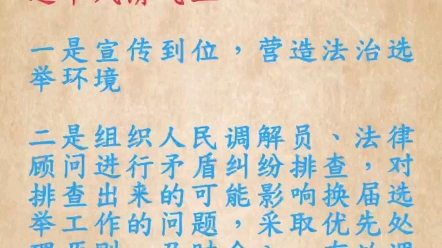 一是宣传到位，营造法治选
举环境
二是组织人民调解员、法律
顾问进行矛盾纠纷排查，对
排查出来的可能影响换届选
举工作的问题，采取优先处